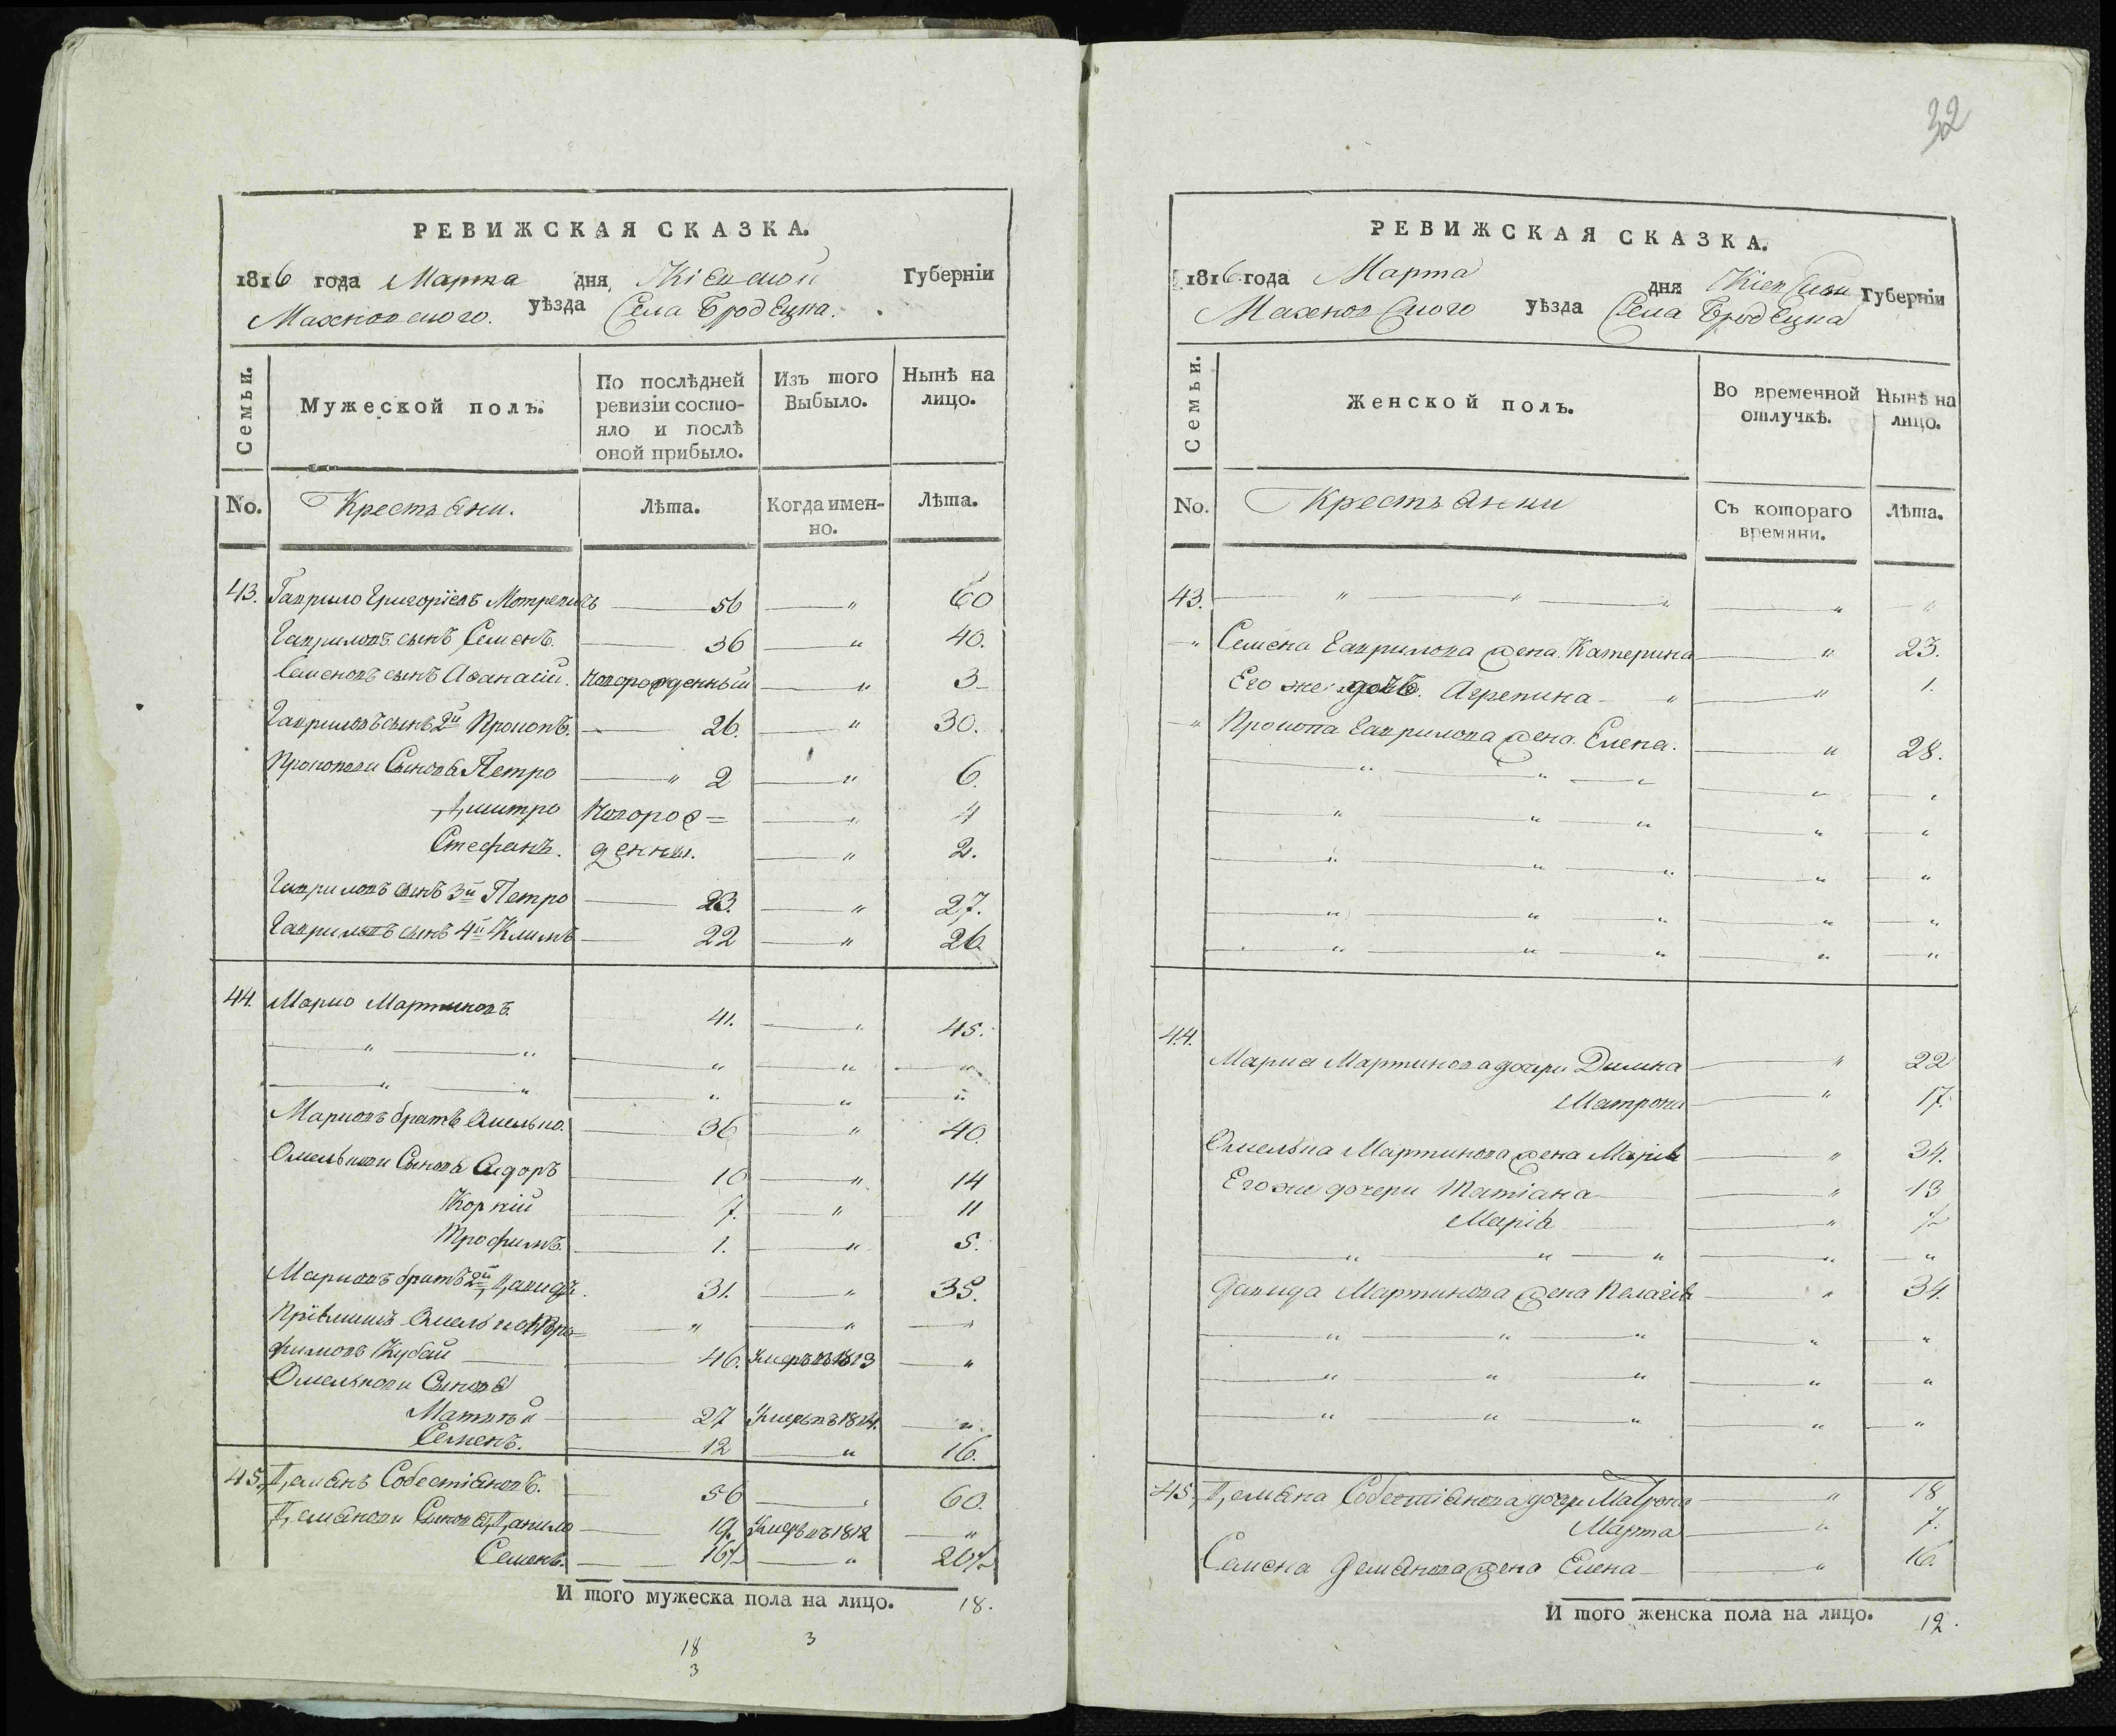 РЕВИЖСКАЯ СКАЗКА.
1816 года Марта дня Кіевской Губерніи
Махновского уѣзда Села Бродецка.
Семьи.
Мужеской полъ.
По послѣдней ревизіи состояло и послѣ оной прибыло.
Изъ того Выбыло.
Нынѣ на лицо.
No. Крестьяни. Лѣта. Когда именно. Лѣта.
43. Гаврило Григоріевъ Мотревичъ 56 " 60
Гавриловъ сынъ Семенъ. 36 " 40.
Семеновъ сынъ Афанасій. новорожденный " 3
Гавриловъ сынъ 2й Прокопъ. 26. " 30.
Прокопови Сыновя Петро " 2 " 6.
Дмитро новорож= " 4
Стефанъ. денны. " 2.
Гавриловъ сынъ 3й Петро 23. " 27.
Гавриловъ сынъ 4й Климъ 22 " 26
44. Марко Мартиновъ. 41. " 45.
" " " " "
" " " " "
Марковъ братъ Омелько. 36 " 40.
Омелькови Сыновя Сидоръ 10 " 14
Корній 7. " 11
Трофимъ. 1. " 5.
Марковъ братъ 2й Давидъ. 31. " 35.
Пріемишъ Омелько Тро= " " "
фимовъ Кубай 46. Умеръ въ 1813 "
Омелькови Сыновя
Матвѣй 27 Умеръ въ 1814. "
Семенъ. 12 " 16.
45. Демянъ Собестіяновъ. 56 " 60.
Демянови Сыновя Данило 19. Умеръ въ 1812 "
Семенъ. 16½ " 20½
И того мужеска пола на лицо. 18.
18 3
3
32
РЕВИЖСКАЯ СКАЗКА.
1816 года Марта дня Кіевской Губерніи
Махновского уѣзда Села Бродецка
Семьи.
Женской полъ.
Во временной отлучкѣ.
Нынѣ на лицо.
No. Крестьянки Съ котораго времяни. Лѣта.
43. " " " " "
" Семена Гаврилова жена Катерина " 23.
Его же дочь. Агрепина " " 1.
" Прокопа Гаврилова жена Елена. " 28.
" " " " "
" " " " "
" " " " "
" " " " "
" " " " "
44.
Марка Мартинова дочери Домна " 22
Матрона " 17.
Омелька Мартинова жена Марія " 34.
Его же дочери Татіана " 13
Марія "
" " " " "
Давида Мартинова жена Пелагія " 34.
" " " " "
" " " " "
" " " " "
45. Демяна Собестіянова дочери Матрона " 18
Марта " 7.
Семена Демянова жена Елена " 16.
И того женска пола на лицо. 12.